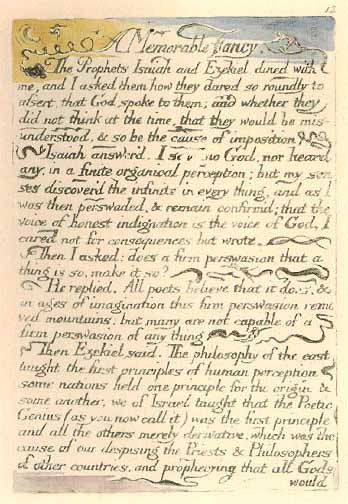 12
A Memorable Fancy.
The Prophets Isaiah and Ezekiel dined with
me, and I asked them how they dared so roundly to
assert, that God spoke to them; and whether they
did not think at the time, that they would be mis-
understood, & so be the cause of imposition.
Isaiah answerd. I saw no God, nor heard
any, in a finite organical perception; but my sen-
ses discoverd the infinite in every thing, and as I
was then perswaded, & remain confirmd; that the
voice of honest indignation is the voice of God, I
cared not for consequences but wrote.
Then I asked: does a firm perswasion that a
thing is so, make it so?
He replied. All poets believe that it does, &
in ages of imagination this firm perswasion remo
ved mountains; but many are not capable of a
firm perswasion of any thing
Then Ezekiel said. The philosophy of the east
taught the first principles of human perception
some nations held one principle for the origin &
some another, we of Israel taught that the Poetic
Genius (as you now call it) was the first principle
and all the others merely derivative, which was the
cause of our despising the Priests & Philosophers
of other countries, and prophecying that all Gods
would